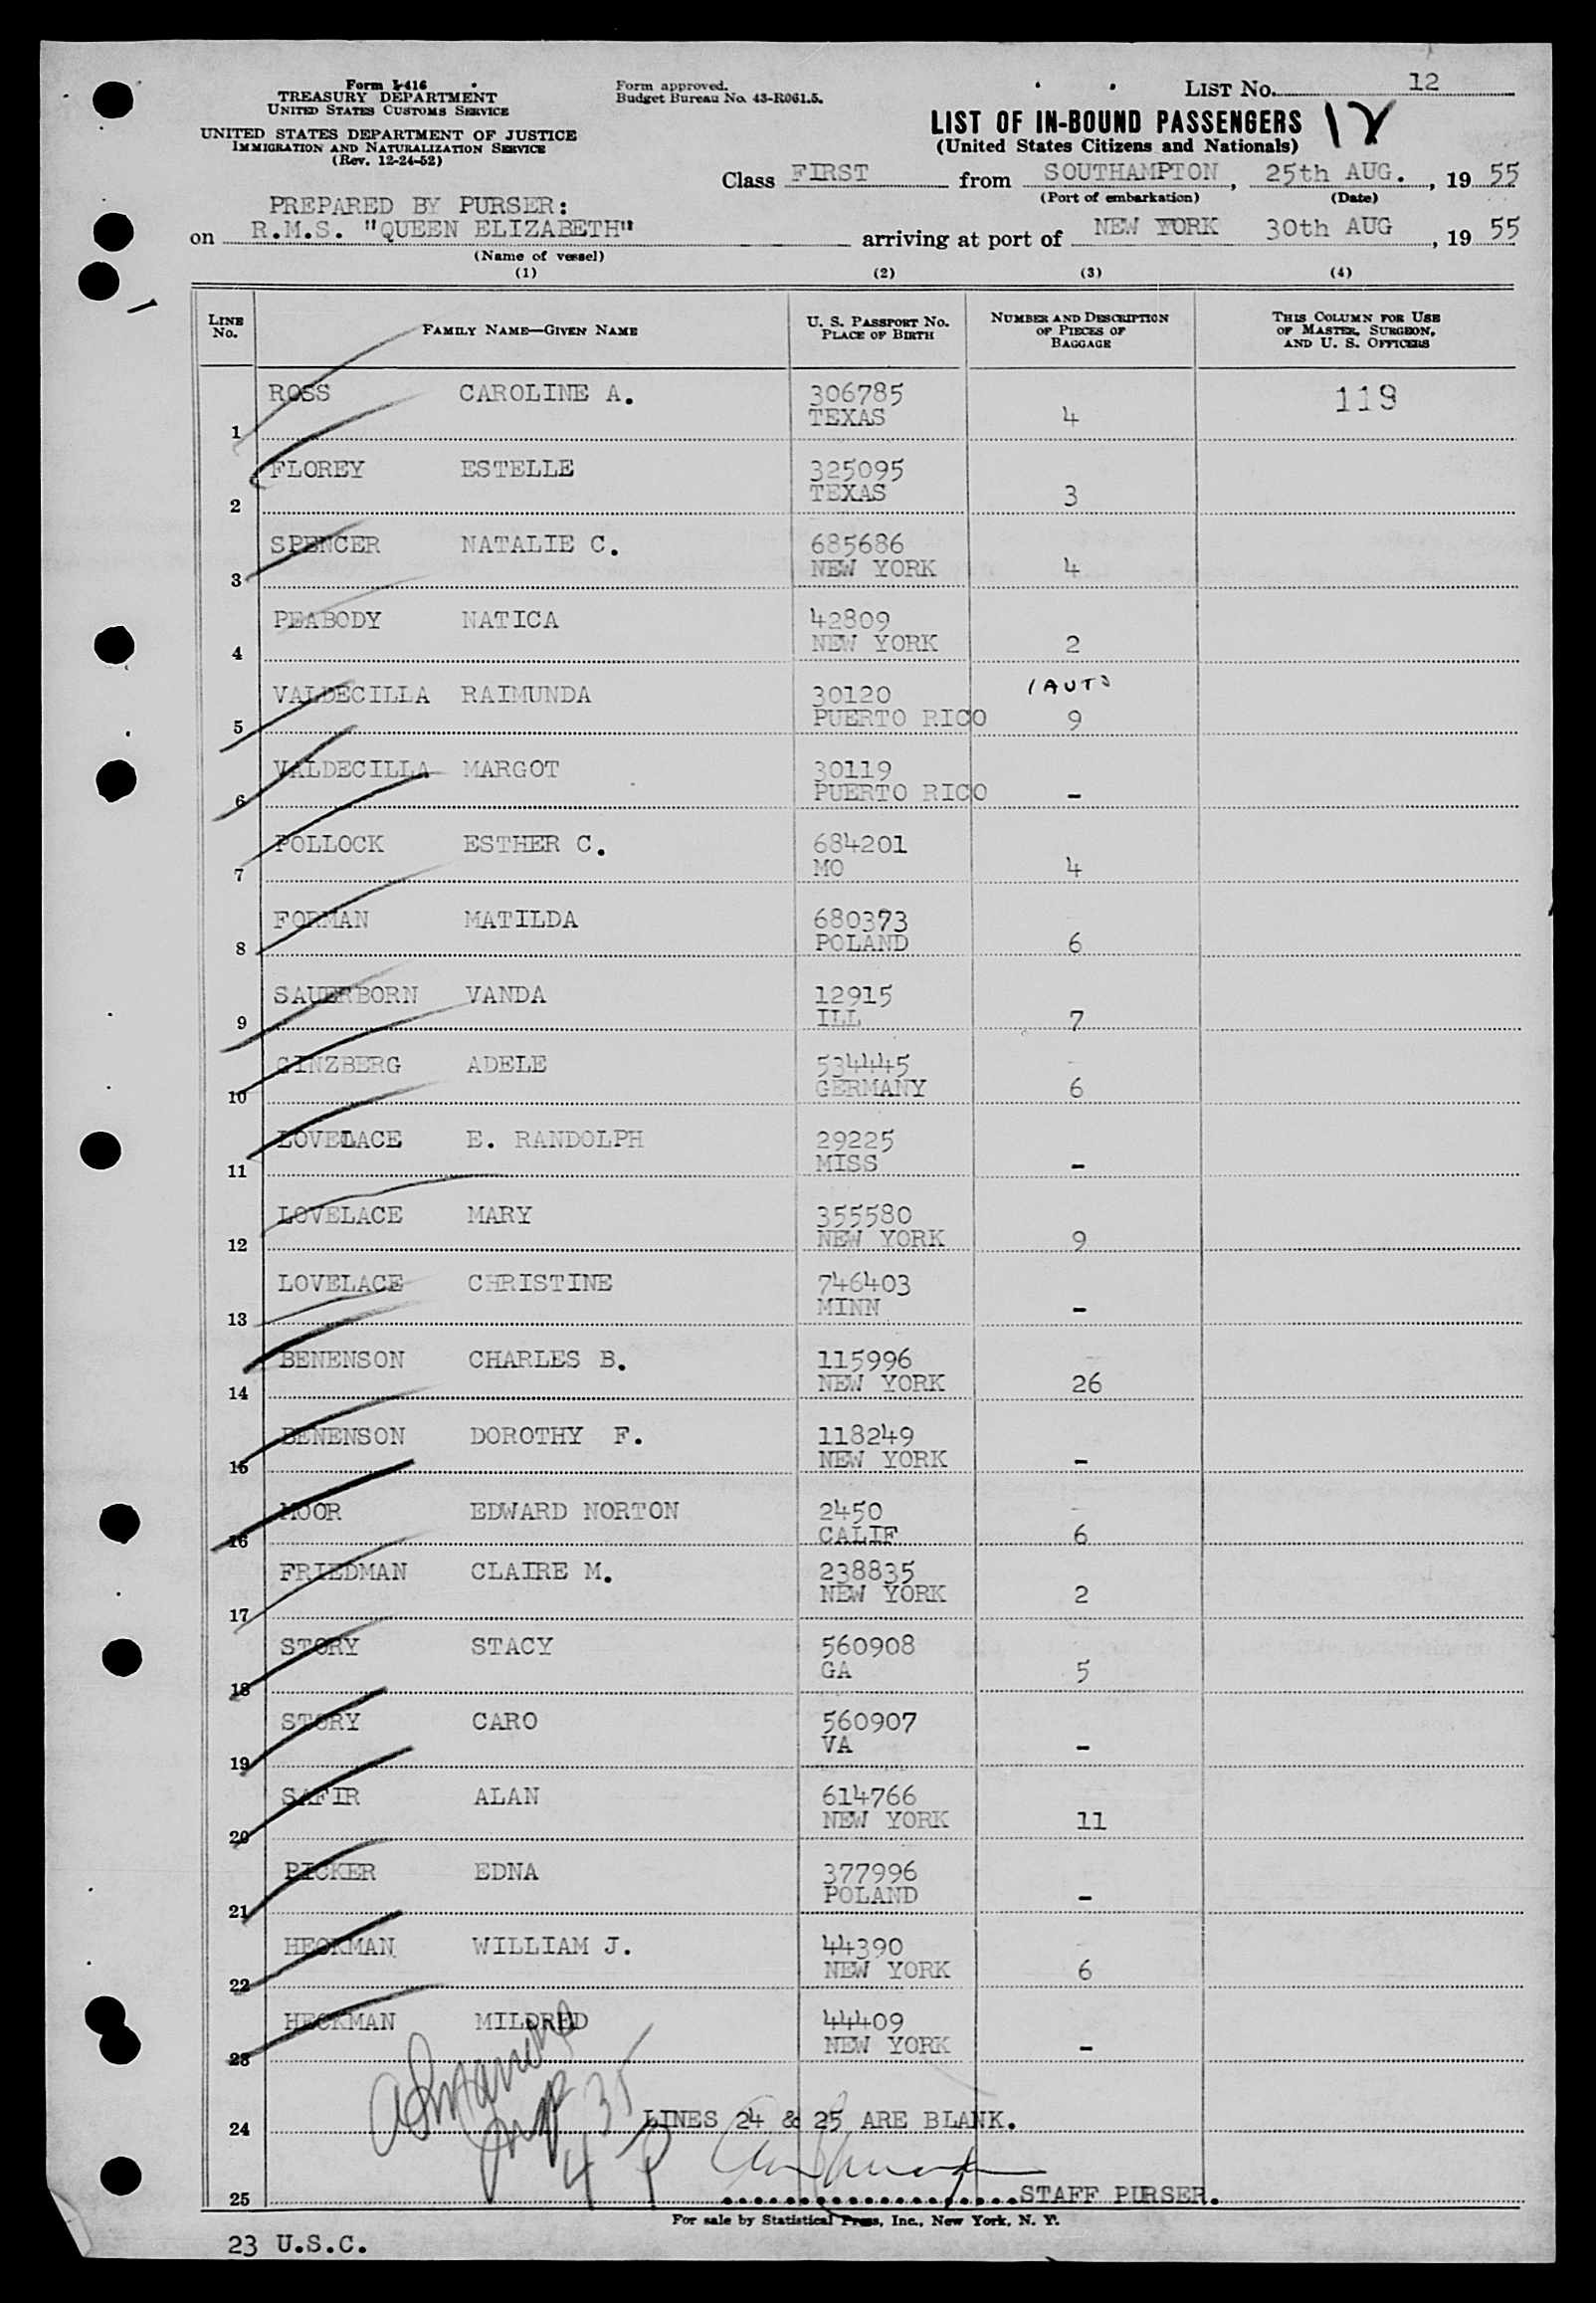 Form I-416
TREASURY DEPARTMENT
UNITED STATES CUSTOMS SERVICE
UNITED STATES DEPARTMENT OF JUSTICE
IMMIGRATION AND NATURALIZATION SERVICE
(Rev. 12-24-52)
Form approved.
Budget Bureau No. 43-R061.5.
LIST No. 12
LIST OF IN-BOUND PASSENGERS 12
(United States Citizens and Nationals)
Class FIRST from SOUTHAMPTON, 25th AUG., 1955
(Port of embarkation) (Date)
PREPARED BY PURSER:
on R.M.S. "QUEEN ELIZABETH" arriving at port of NEW YORK 30th AUG, 1955
(Name of vessel)
(1) (2) (3) (4)
LINE No. FAMILY NAME—GIVEN NAME U. S. PASSPORT No. PLACE OF BIRTH NUMBER AND DESCRIPTION OF PIECES OF BAGGAGE THIS COLUMN FOR USE OF MASTER, SURGEON, AND U. S. OFFICERS
1 ROSS CAROLINE A. 306785 TEXAS 4 119
2 FLOREY ESTELLE 325095 TEXAS 3
3 SPENCER NATALIE C. 685686 NEW YORK 4
4 PEABODY NATICA 42809 NEW YORK 2
5 VALDECILLA RAIMUNDA 30120 PUERTO RICO 1 AUTO 9
6 VALDECILLA MARGOT 30119 PUERTO RICO -
7 POLLOCK ESTHER C. 684201 MO 4
8 FORMAN MATILDA 680373 POLAND 6
9 SAUERBORN VANDA 12915 ILL 7
10 GINZBERG ADELE 534445 GERMANY 6
11 LOVELACE E. RANDOLPH 29225 MISS -
12 LOVELACE MARY 355580 NEW YORK 9
13 LOVELACE CHRISTINE 746403 MINN -
14 BENENSON CHARLES B. 115996 NEW YORK 26
15 BENENSON DOROTHY F. 118249 NEW YORK -
16 MOOR EDWARD NORTON 2450 CALIF 6
17 FRIEDMAN CLAIRE M. 238835 NEW YORK 2
18 STORY STACY 560908 GA 5
19 STORY CARO 560907 VA -
20 SAFIR ALAN 614766 NEW YORK 11
21 PICKER EDNA 377996 POLAND -
22 HECKMAN WILLIAM J. 44390 NEW YORK 6
23 HECKMAN MILDRED 44409 NEW YORK -
24 LINES 24 & 25 ARE BLANK.
25 STAFF PURSER.
For sale by Statistical Press, Inc., New York, N. Y.
23 U.S.C.